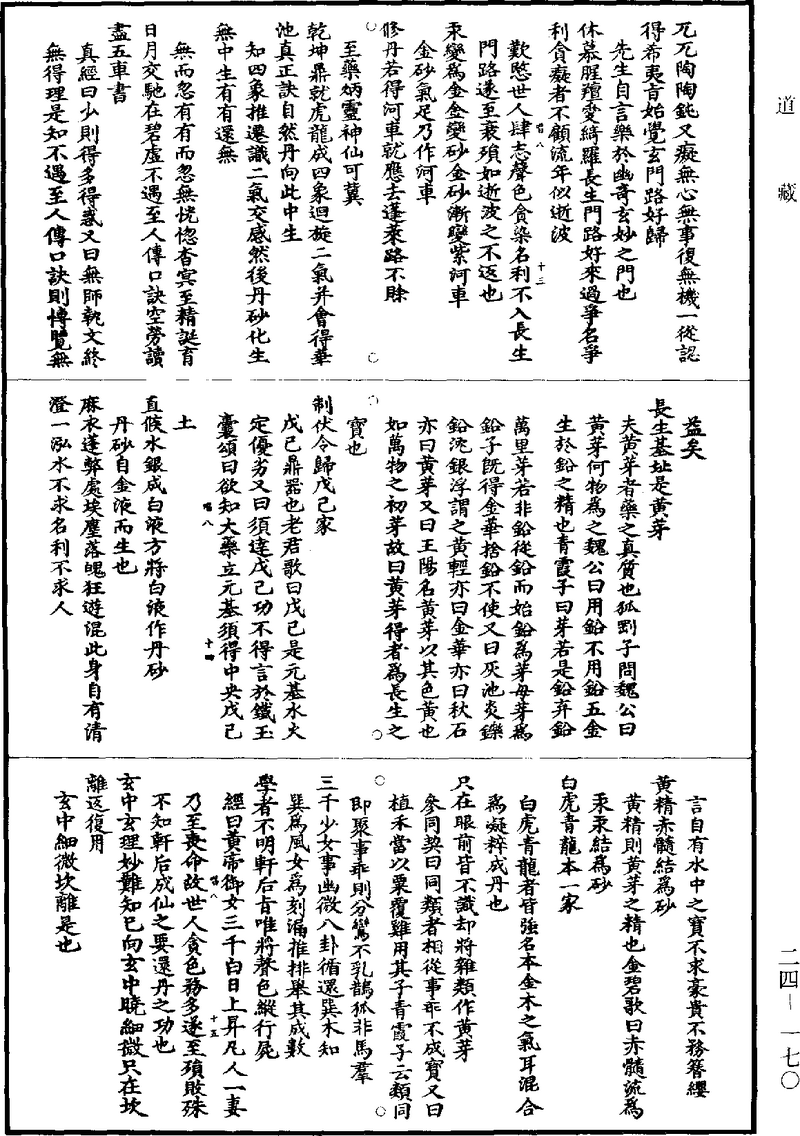 道藏
兀兀陶陶鈍又癡無心無事復無機一從認
得希夷旨始覺玄門路好歸
先生自言樂於幽奇玄妙之門也
休慕腥羶愛綺羅長生門路好來過爭名爭
利貪癡者不顧流年似逝波
歎愍世人肆志聲色貪染名利不入長生
門路遂至衰殞如逝波之不返也
汞變為金金變砂金砂漸變紫河車
金砂氣足乃作河車
修丹若得河車就應去蓬萊路不賒
至藥炳靈神仙可冀
乾坤鼎就虎龍成四象迴旋二氣并會得華
池真正訣自然丹向此中生
知四象推遷識二氣交感然後丹砂化生
無中生有有還無
無而忽有有而忽無恍惚杳冥至精誕育
日月交馳在碧虛不遇至人傳口訣空勞讀
盡五車書
真經曰少則得多得惑又曰無師執文終
無得理是知不遇至人傳口訣則博覽無
益矣
長生基址是黃芽
夫黃芽者藥之真質也狐剛子問魏公曰
黃芽何物為之魏公曰用鉛不用鉛五金
生於鉛之精也青霞子曰芽若是鉛弃鉛
萬里芽若非鉛從鉛而始鉛為芽母芽為
鉛子既得金華捨鉛不使又曰灰池炎鑠
鉛沉銀浮謂之黃輕亦曰金華亦曰秋石
亦曰黃芽又曰王陽名黃芽以其色黃也
如萬物之初芽故曰黃芽得者為長生之
寶也
制伏令歸戊己家
戊己鼎器也老君歌曰戊己是元基水火
定優劣又曰須達戊己功不得言於鐵玉
囊頌曰欲知大藥立元基須得中央戊己
土
直候水銀成白液方將白液作丹砂
丹砂自金液而生也
麻衣蓬弊處埃塵落魄狂遊混此身自有清
澄一泓水不求名利不求人
言自有水中之寶不求豪貴不務簪纓
黃精赤髓結為砂
黃精則黃芽之精也金碧歌曰赤髓流為
汞汞結為砂
白虎青龍本一家
白虎青龍者皆強名本金木之氣耳混合
為凝粹成丹也
只在眼前皆不識却將雜類作黃芽
參同契曰同類者相從事乖不成寶又曰
植禾當以粟覆雞用其子青霞子云類同
即聚事乖則分鸞不乳鵲狐非馬羣
三千少女事幽微八卦循還巽木知
巽為風女為刻漏推排舉其成數
學者不明軒后旨唯將聲色縱行屍
經曰黃帝御女三千白日上昇凡人一妻
乃至喪命故世人貪色務多遂至殞敗殊
不知軒后成仙之要還丹之功也
玄中玄理妙難知已向玄中曉細微只在坎
離返復用
玄中細微坎離是也
二四—一七〇